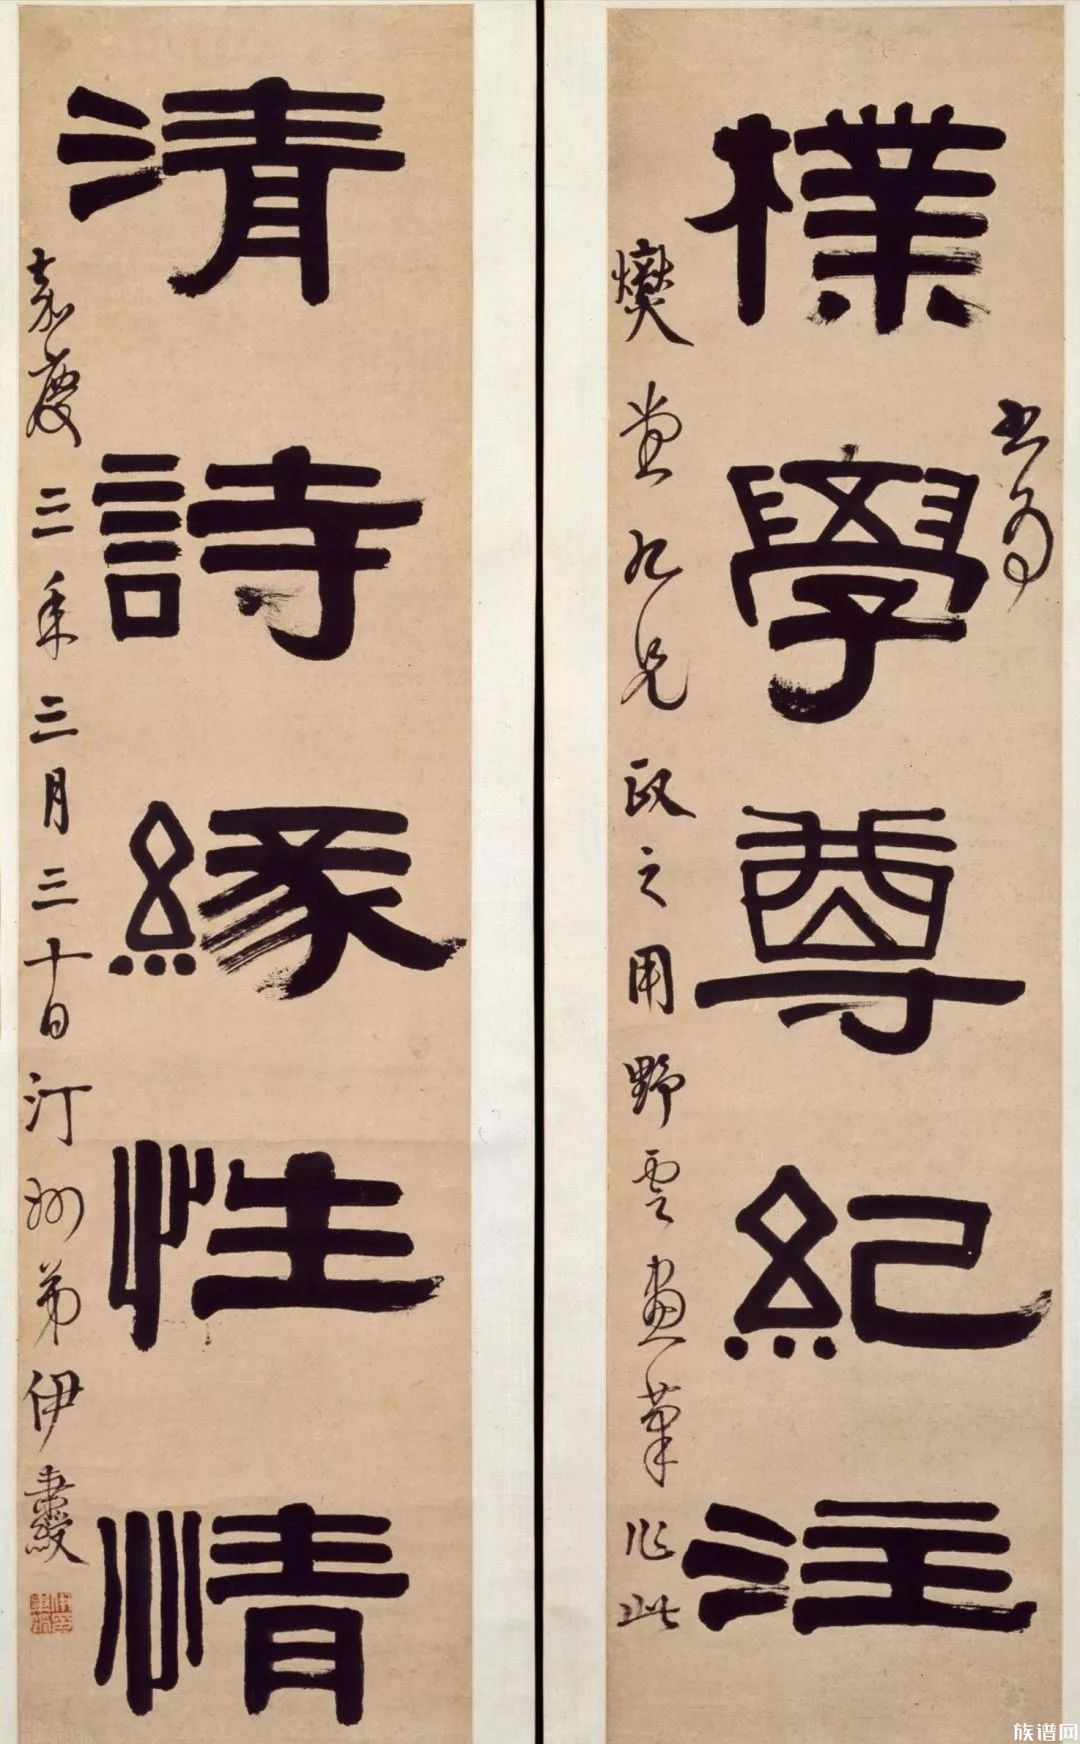 書為
樸學尊紀注
燮堂九兄政之用野雲畫筆作此
清詩緣性情
嘉慶三年三月三十日汀州弟伊秉綬
族谱网